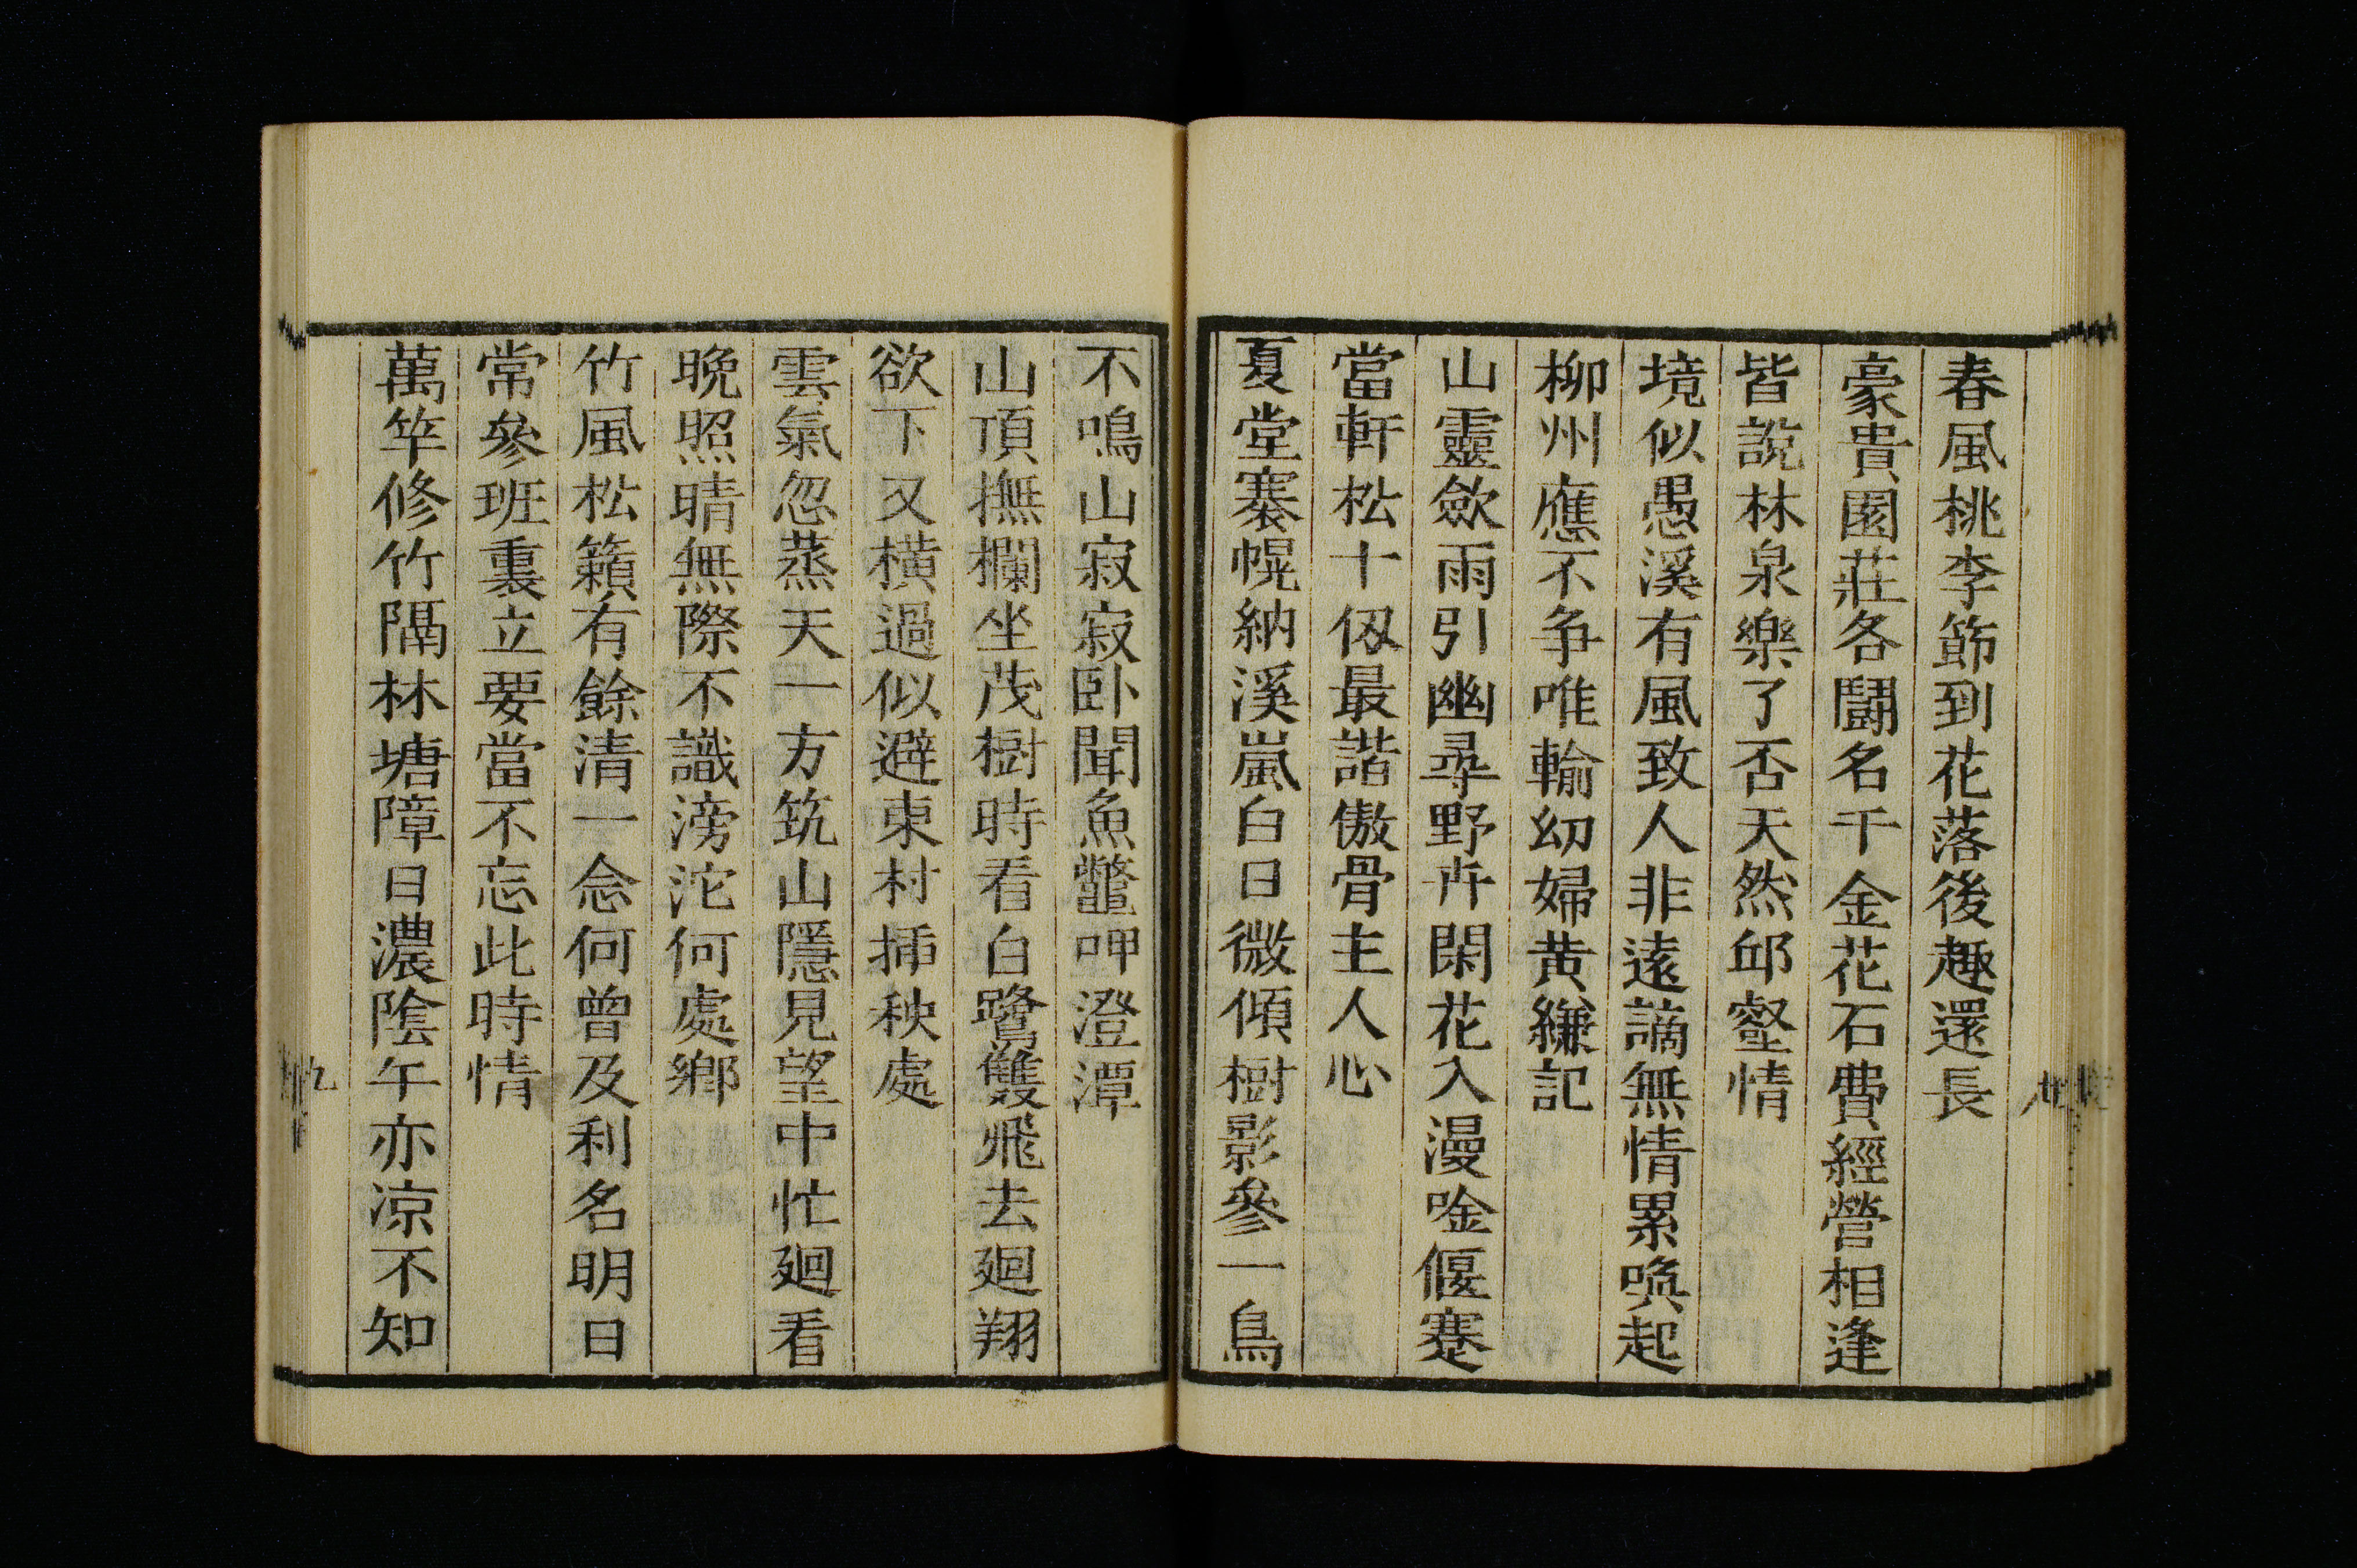 春風桃李節到花落後趣還長
豪貴園莊各鬪名千金花石費經營相逢
皆說林泉樂了否天然邱壑情
境似愚溪有風致人非遠謫無情累喚起
柳州應不争唯輸幼婦黄縑記
山靈歛雨引幽尋野卉閑花入漫唫偃蹇
當軒松十仭最諧傲骨主人心
夏堂褰幌納溪嵐白日微傾樹影參一鳥
不鳴山寂寂卧聞魚鼈呷澄潭
山頂撫欄坐茂樹時看白鷺雙飛去廻翔
欲下又横過似避東村挿秧處
雲氣忽蒸天一方筑山隱見望中忙廻看
晩照晴無際不識滂沱何處鄉
竹風松籟有餘清一念何曾及利名明日
常參班裏立要當不忘此時情
萬竿修竹隔林塘障日濃陰午亦凉不知
九